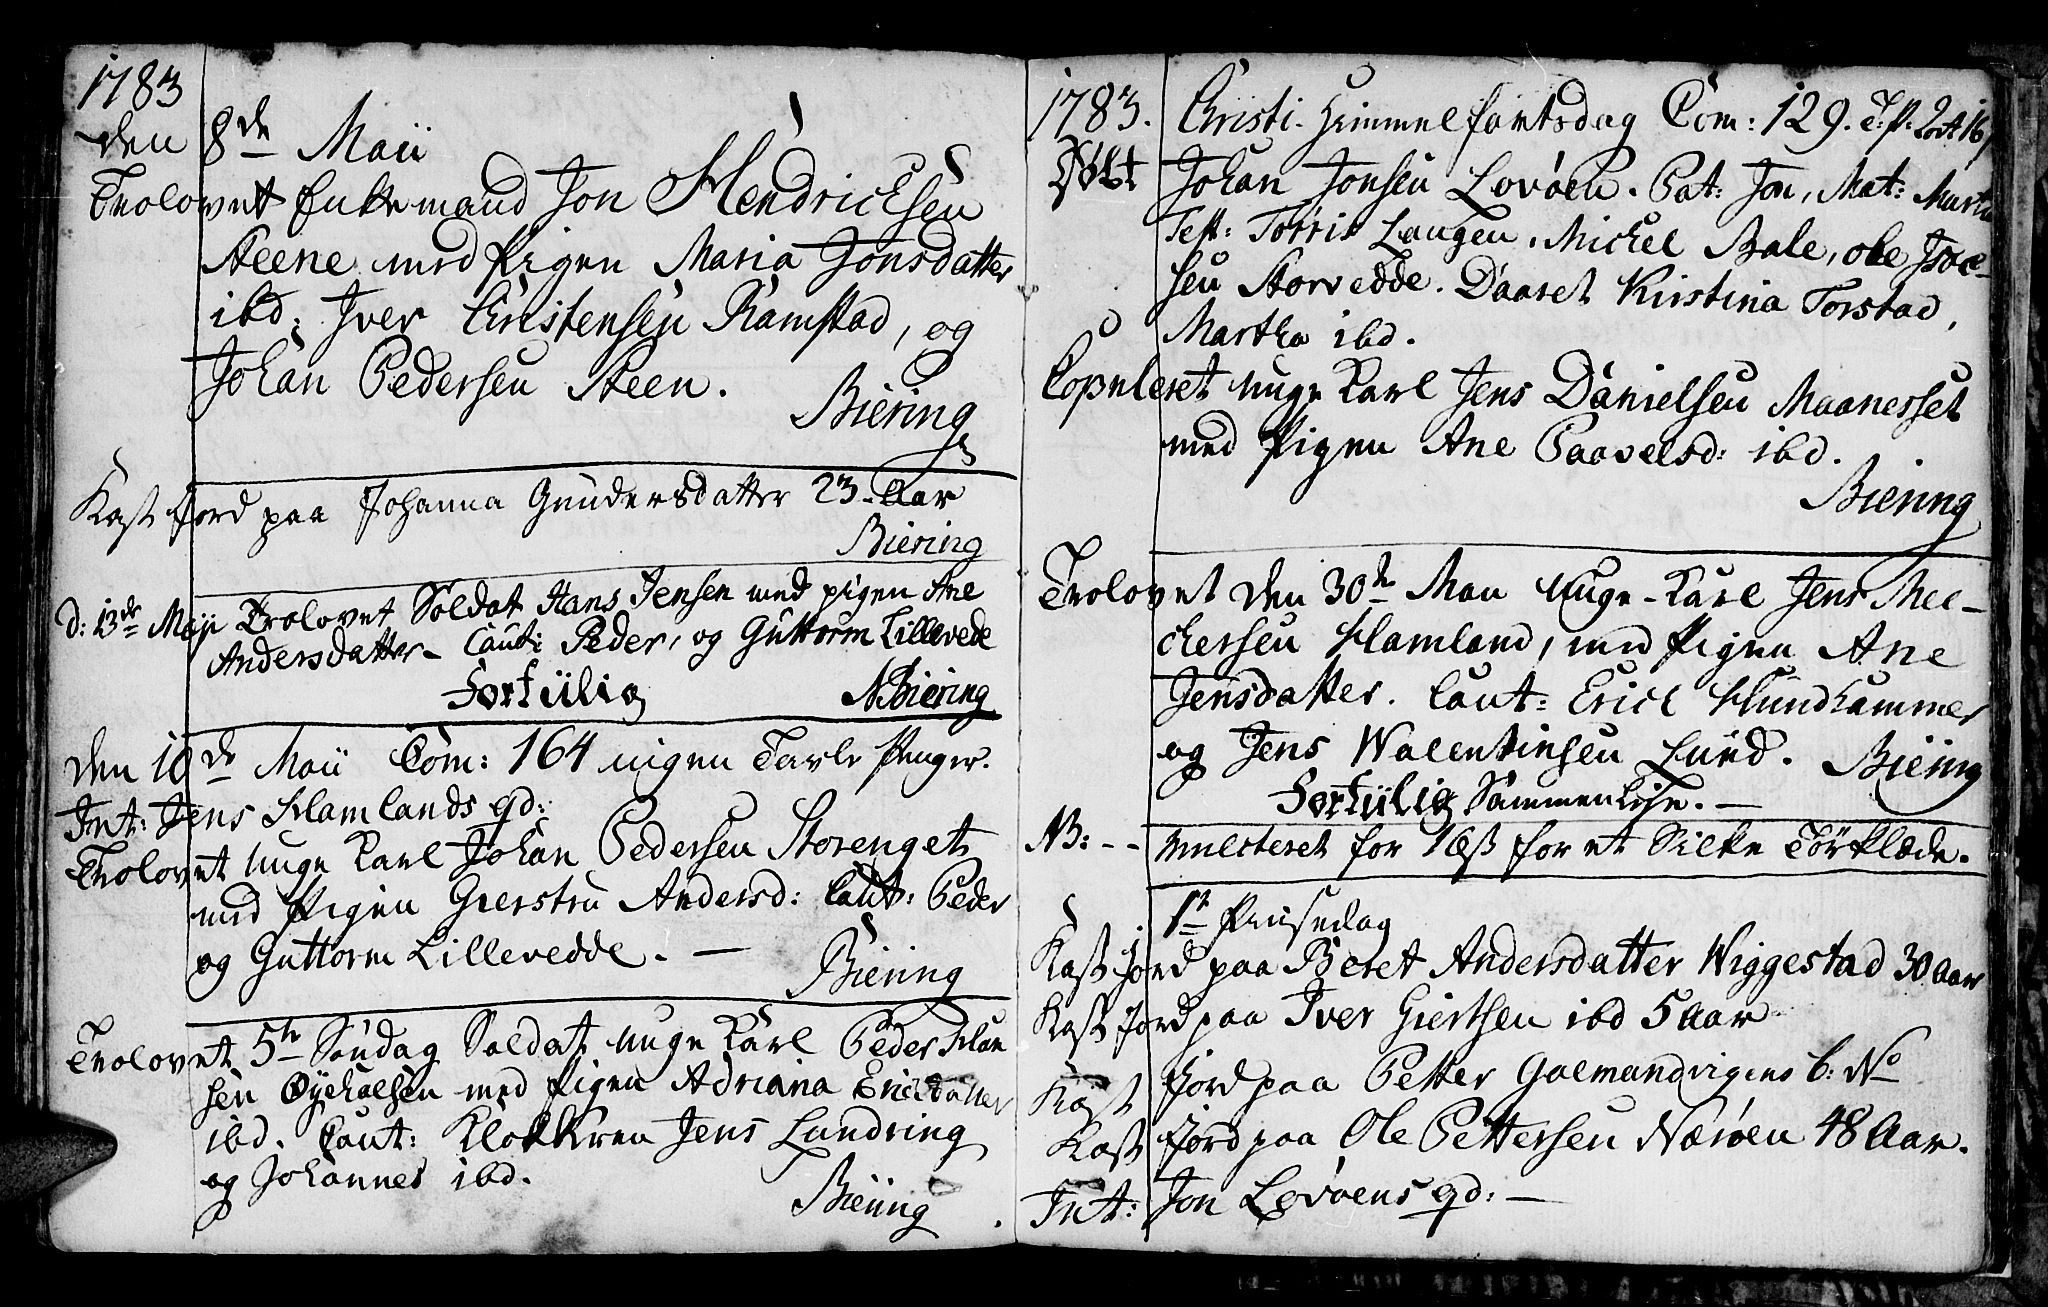 1783
den 8de Maii
Trolovet Enkemand Jon Hendricksen
Steene med Pigen Maria Jonsdatter
ibd: Iver Christensen Ramstad, og
Johan Pedersen Steen.
Biering
Kast Jord paa Johanna Gundersdatter 23. Aar
Biering
D: 13de Maji Trolovet Soldat Hans Jensen med pigen Ane
Andersdatter – Caut: Peder, og Guttorm Lillevede
Fortülig NBiering
Den 18de Maii Com: 164 ingen Tavle Penger.
Int: Jens Hamlands qd:
Trolovet unge Karl Johan Pedersen Storenget
med Pigen Gierstru Andersd: Caut: Peder
og Guttorm Lillevedde. —
Biering
Trolovet 5te Søndag Soldat unge Karl Peder Han
sen Øyeholsen med Pigen Adriana Ericsdatter
ibd. Caut: Klokkren Jens Lundring
og Johannes ibd.
Biering
1783. Christi Himmelfartsdag Com: 129. T:P: 2ort 16
Døbt Johan Jonsen Lovøen. Pat: Jon, Mat: Martha
Test: Torris Laugen, Michel Bale, ole Isac-
sen Storvedde. Daaret Kirstina Torstad,
Martha ibd.
Copuleret unge Karl Jens Danielsen Maanesset
med Pigen Ane Paavelsd: ibd.
Biering
Trolovet den 30te Maii Unge-Karl Jens Mec-
kelsen Hamland, med Pigen Ane
Jensdatter. Caut: Erich Hundhammer
og Jens Walentinsen Lund. Biering
Fortülig Sammenleje. —
NB: -- mulcteret for for et Silke Tørklæde.
1te Pinsedag
Kast Jord paa Beret Andersdatter Wiggestad 30 Aar
Kast Jord paa Iver Giertsen ibd 5 Aar
Kast Jord paa Petter Galmandvigens b: No
Kast Jord paa Ole Pettersen Nærøen 48 Aar.
Int: Jon Lovøens qd: —